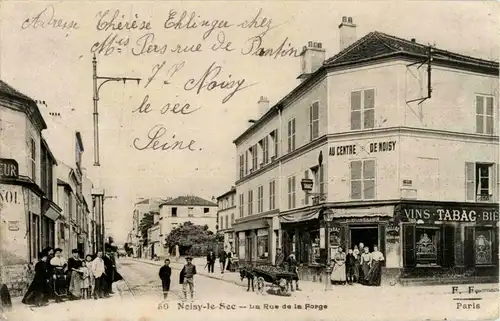 Adresse Thérèse Ehlinger chez
Mr Pers rue de Pantin
Noisy
le sec
Seine.
AU CENTRE DE NOISY
VINS TABAC BIE
NOL
56 Noisy-le-Sec - La Rue de la Forge
E. F.
Paris